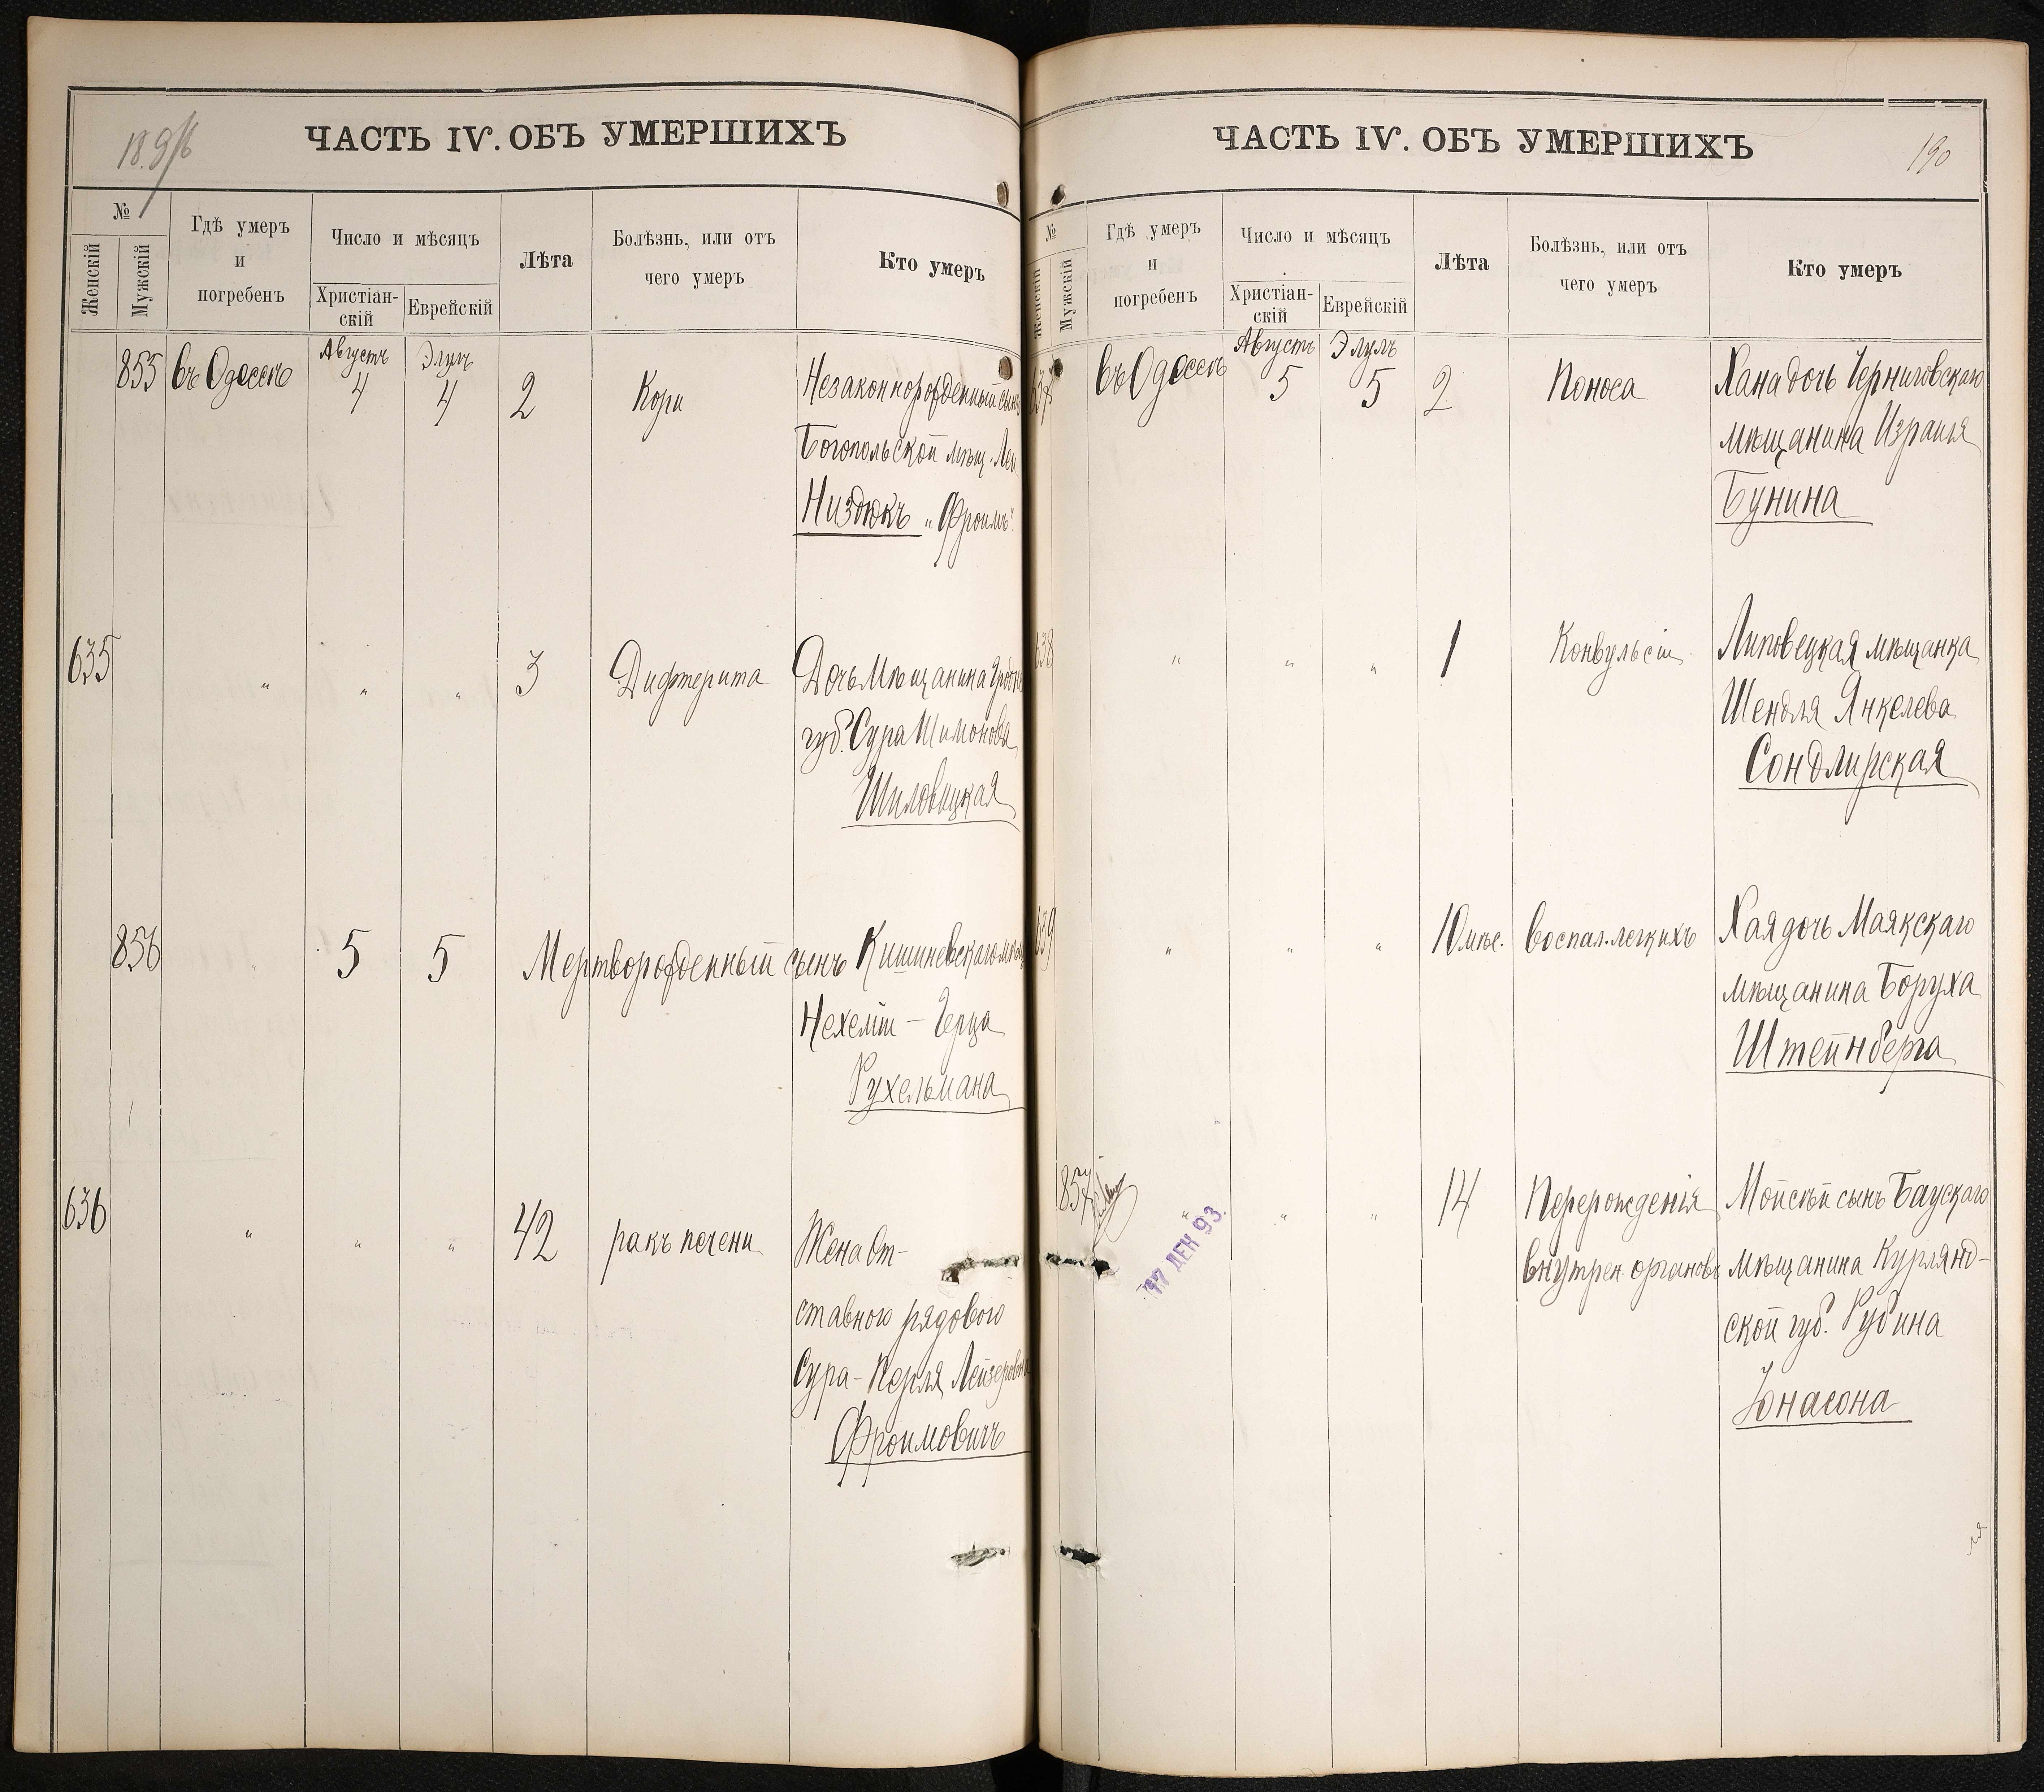 ЧАСТЬ IV. ОБЪ УМЕРШИХЪ
№
Женскій
Мужскій
Гдѣ умеръ
и
погребенъ
Число и мѣсяцъ
Христіан-
скій
Еврейскій
Лѣта
Болѣзнь, или отъ
чего умеръ
Кто умеръ
855 въ Одессѣ Августъ 4 Элулъ 4 2 Кори Незаконнорожденный сынъ
Богопольской мѣщ. Леи
Низдюкъ „Фроимъ"
635 " " " 3 Дифтерита Дочь мѣщанина
губ. Сура Шимонова
Шиловицкая
856 " 5 5 Мертворожденный сынъ Кишиневскаго мѣщ
Нехемiи - Герца
Рухельмана
636 " " " 42 ракъ печени Жена от-
ставного рядового
Сура-Перля Лейзеровна
Фроимовичъ
ЧАСТЬ IV. ОБЪ УМЕРШИХЪ
190
№
Женскій
Мужскій
Гдѣ умеръ
и
погребенъ
Число и мѣсяцъ
Христіан-
скій
Еврейскій
Лѣта
Болѣзнь, или отъ
чего умеръ
Кто умеръ
637 въ Одессѣ Августъ 5 Элулъ 5 2 Поноса Хана дочь Черниговскаго
мѣщанина Израиля
Бунина
638 " " " 1 Конвульсiи Липовецкая мѣщанка
Шендля Янкелева
Сондлирская
639 " " " 10 мѣс. Воспал. легкихъ Хая дочь Маякскаго
мѣщанина Боруха
Штейнберга
857 " " " 14 Перерожденiя Мойсей сынъ Баускаго
внутрен. органовъ мѣщанина Курлянд-
ской губ. Рубина
Іонасона
17 ДЕК 93.